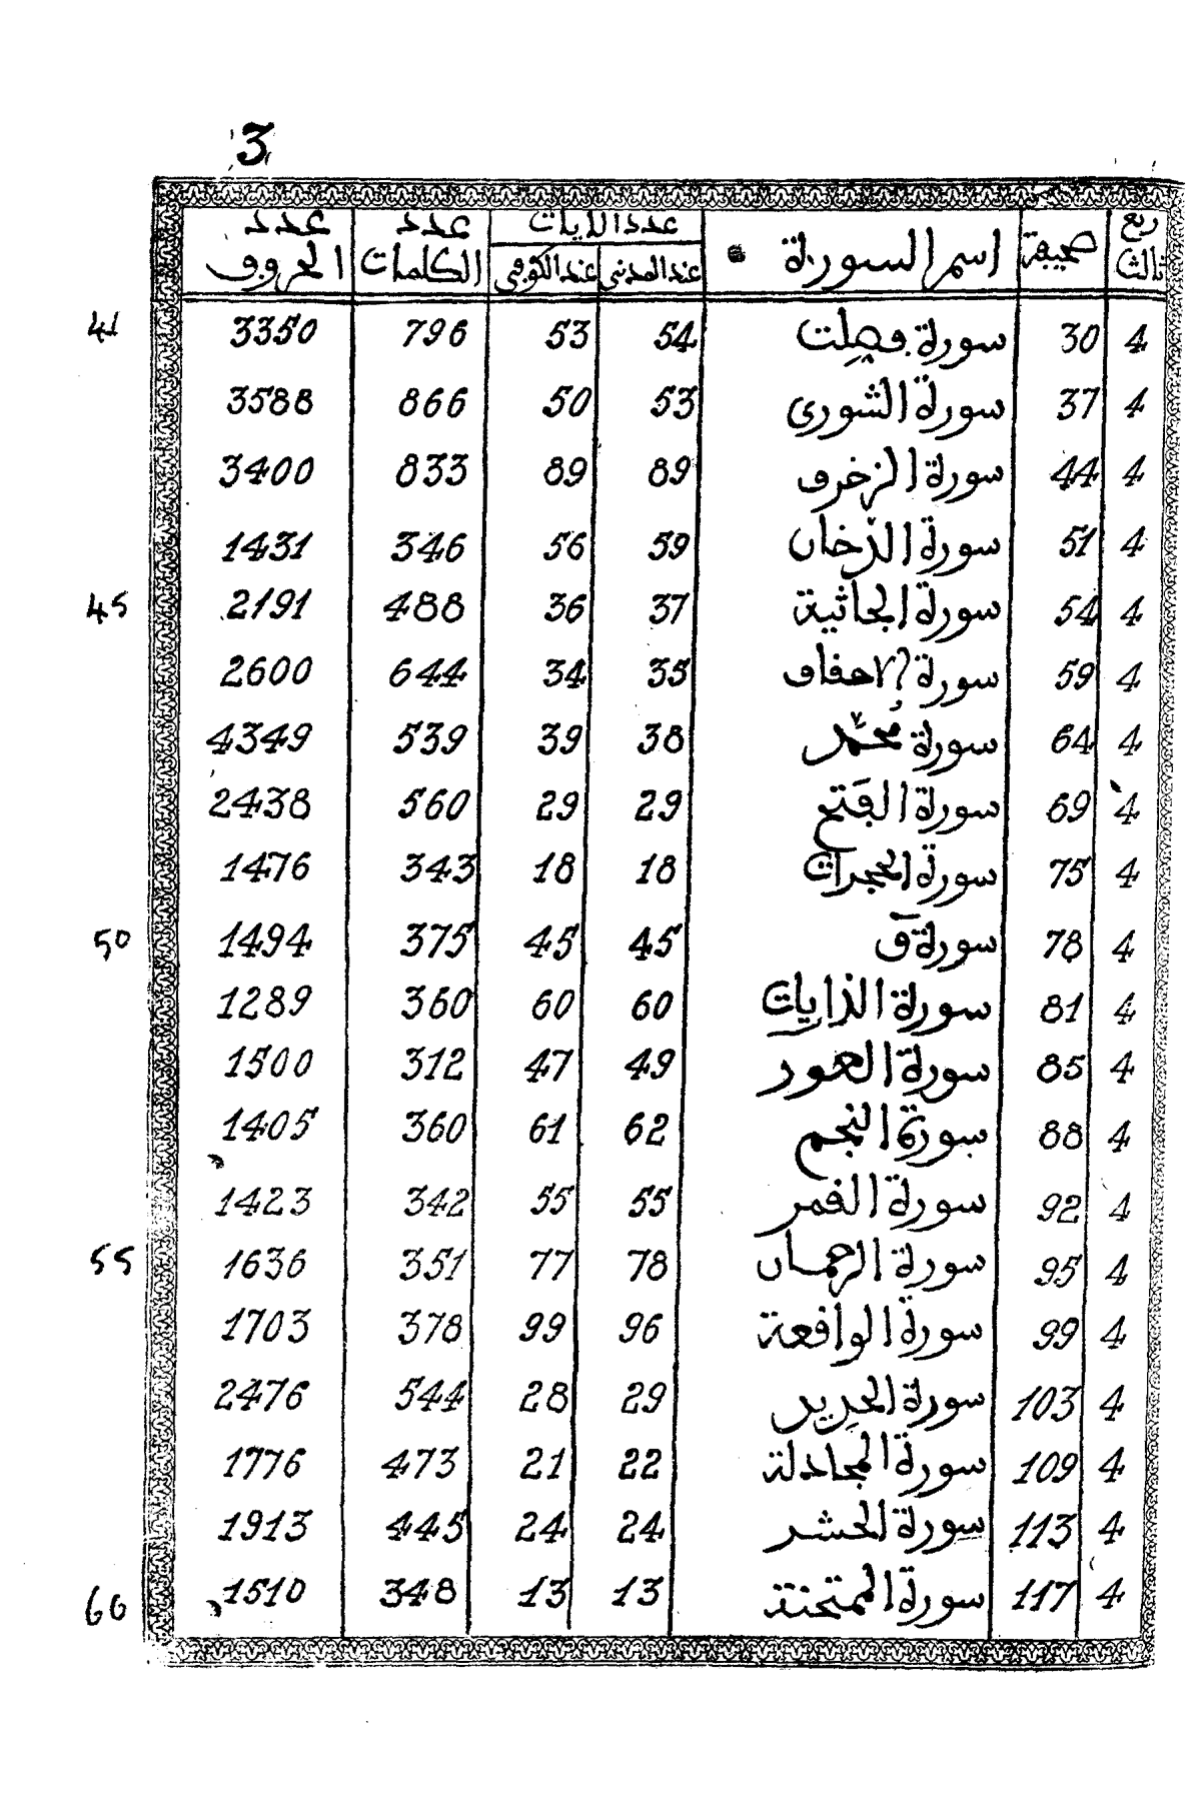 3
ربع ثالث صحيفة اسم السورة عدد الآيات عند المدني عند الكوفي عدد الكلمات عدد الحروف
4 30 سورة فصلت 54 53 796 3350 41
4 37 سورة الشورى 53 50 866 3588
4 44 سورة الزخرف 89 89 833 3400
4 51 سورة الدخان 59 56 346 1431
4 54 سورة الجاثية 37 36 488 2191 45
4 59 سورة الاحقاف 35 34 644 2600
4 64 سورة محمد 38 39 539 4349
4 69 سورة الفتح 29 29 560 2438
4 75 سورة الحجرات 18 18 343 1476
4 78 سورة ق 45 45 375 1494 50
4 81 سورة الذايات 60 60 360 1289
4 85 سورة الطور 49 47 312 1500
4 88 سورة النجم 62 61 360 1405
4 92 سورة القمر 55 55 342 1423
4 95 سورة الرحمان 78 77 351 1636 55
4 99 سورة الواقعة 96 99 378 1703
4 103 سورة الحديد 29 28 544 2476
4 109 سورة المجادلة 22 21 473 1776
4 113 سورة الحشر 24 24 445 1913
4 117 سورة الممتحنة 13 13 348 1510 60